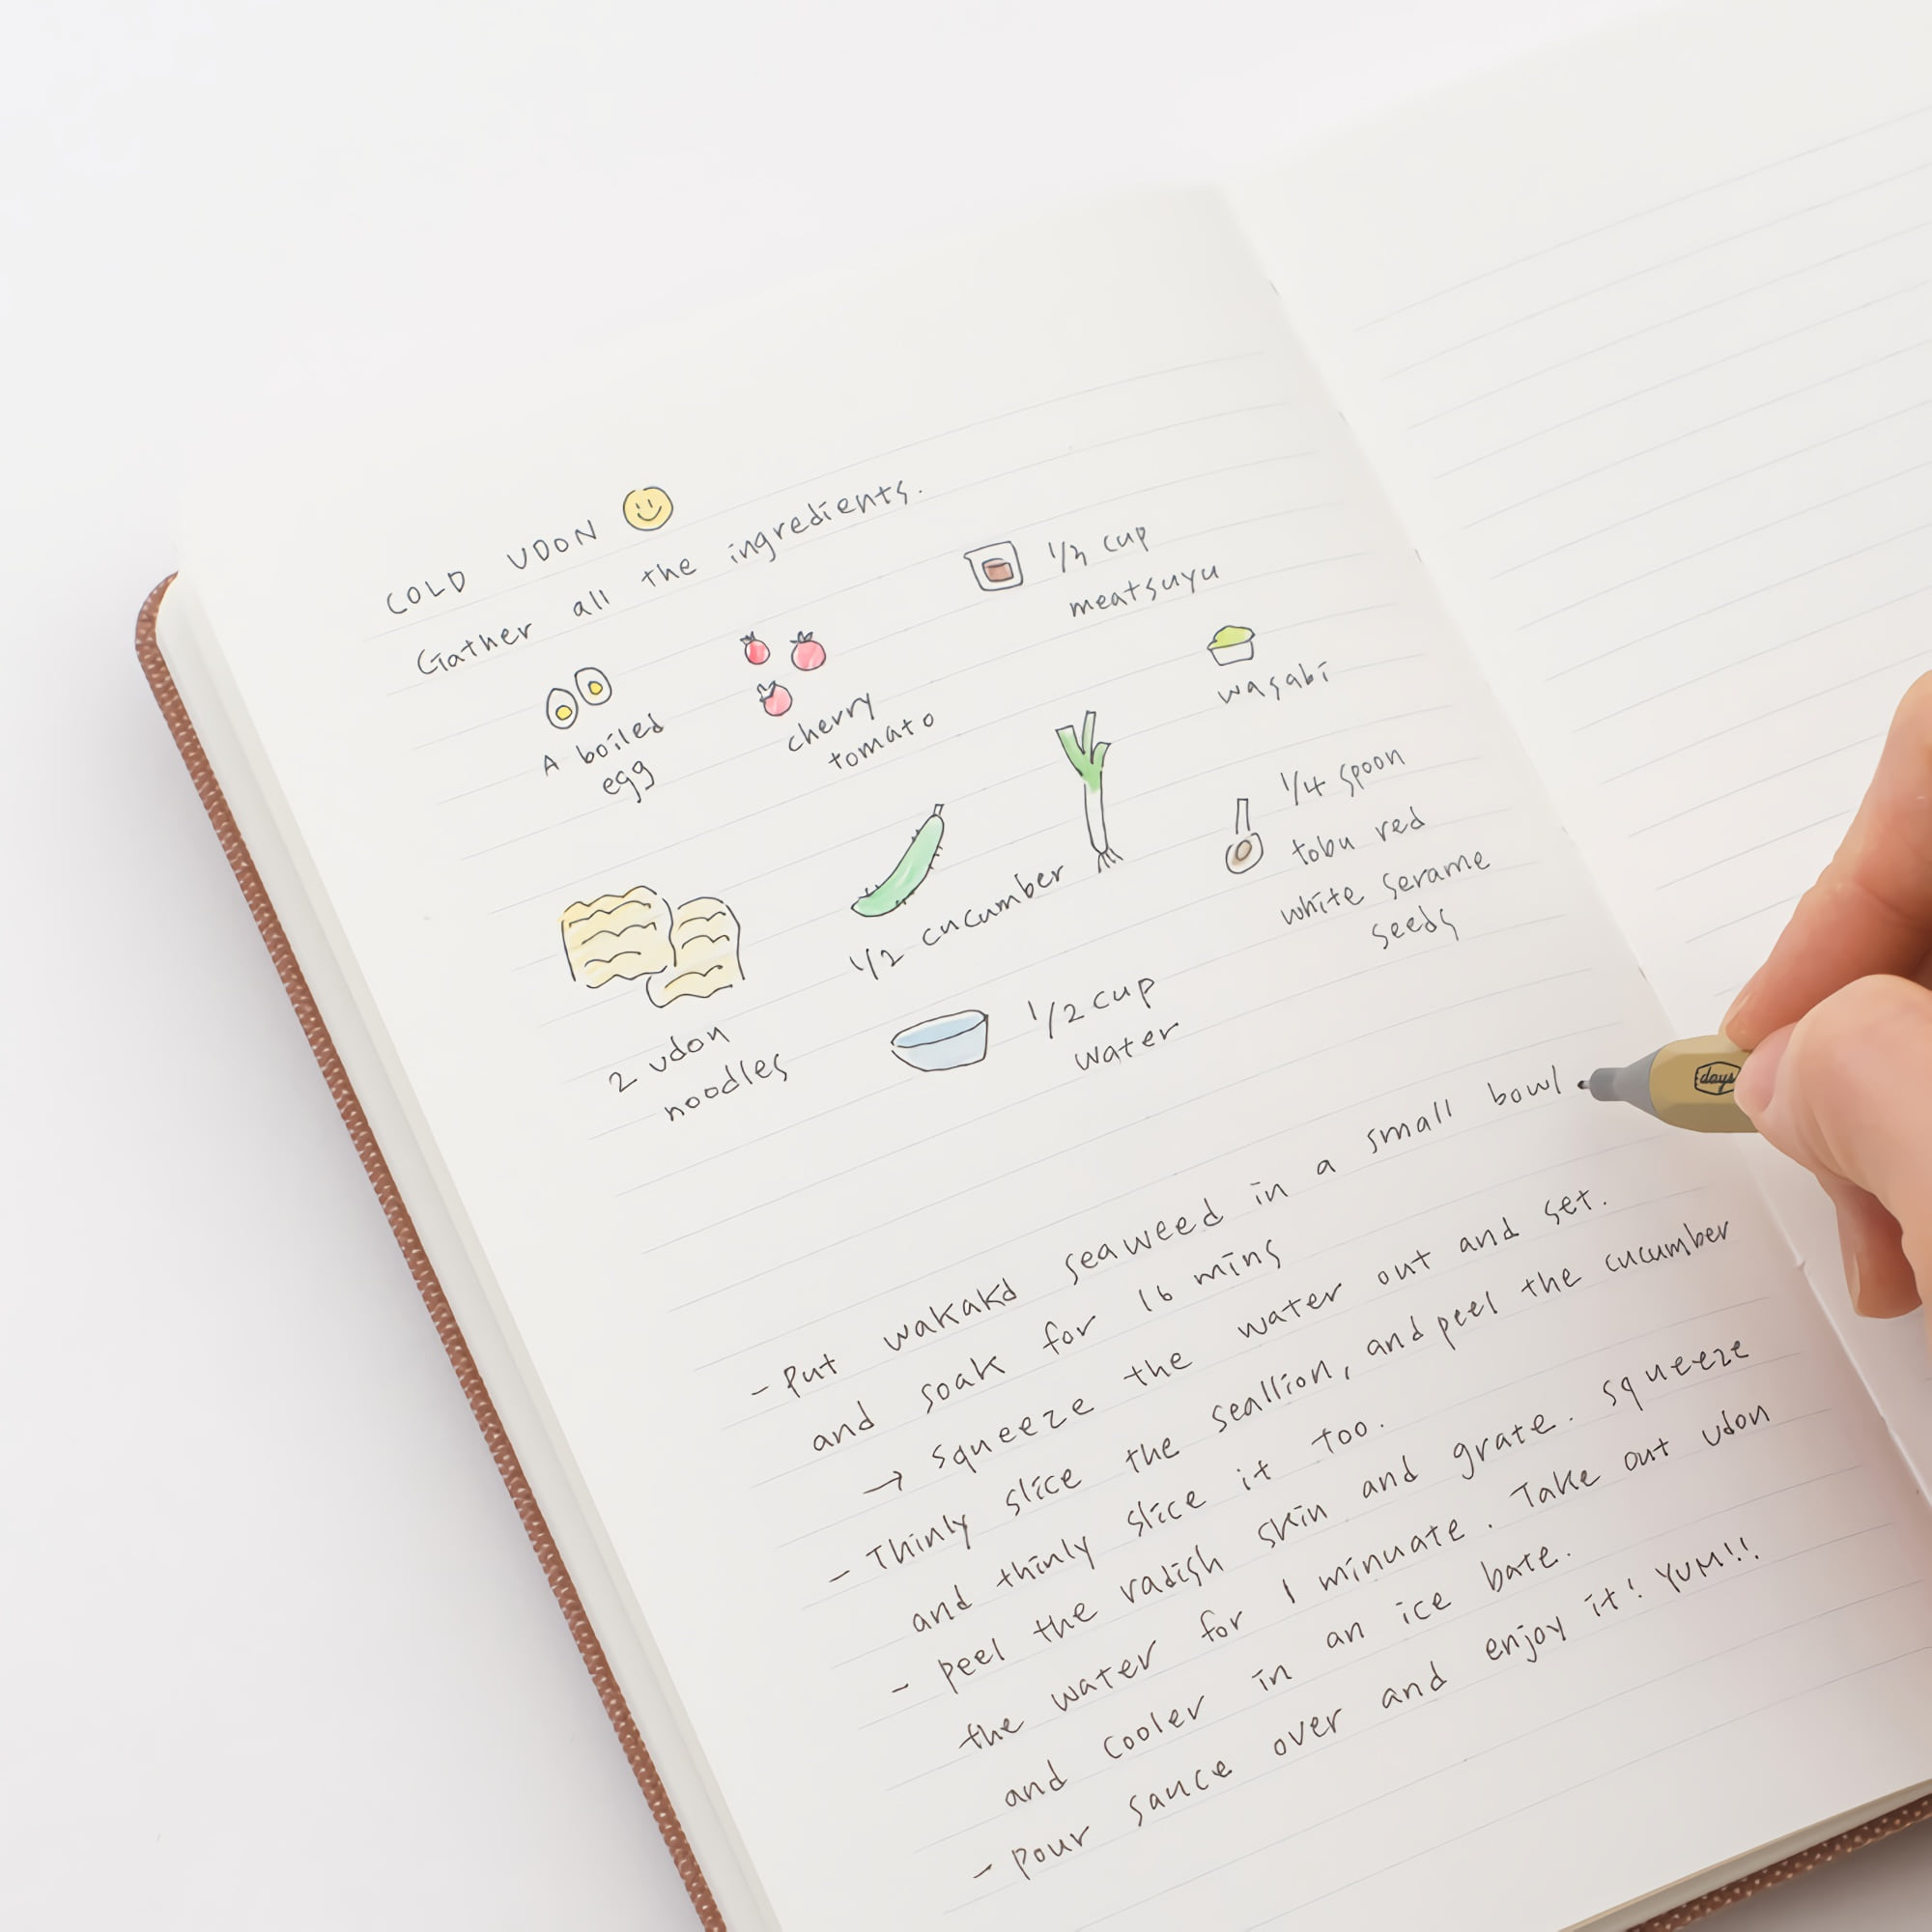 COLD UDON
Gather all the ingredients.
A boiled
egg
cherry
tomato
1/3 cup
meatsuyu
wasabi
2 udon
noodles
1/2 cucumber
1/4 spoon
tobu red
white serame
seeds
1/2 cup
water
- Put wakakd seaweed in a small bowl
and soak for 16 mins
→ squeeze the water out and set.
- Thinly slice the seallion, and peel the cucumber
and thinly slice it too.
- peel the radish skin and grate. squeeze
the water for 1 minuate. Take out udon
and cooler in an ice bate.
- Pour sauce over and enjoy it! YUM!!
days